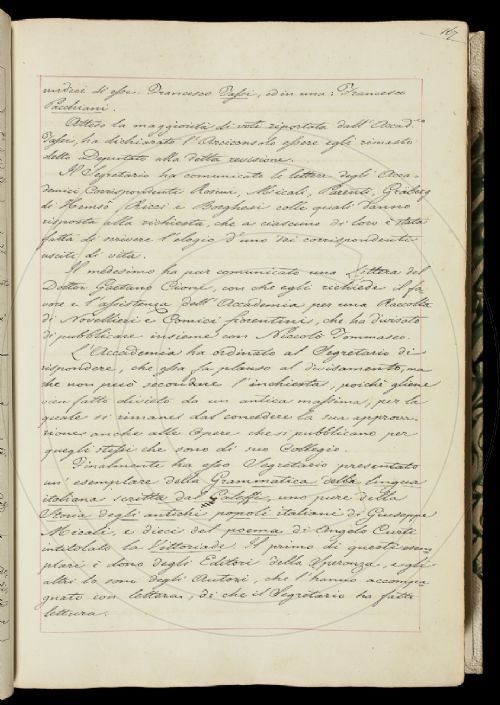 167
undici di esse: Francesco Tassi, ed in una: Francesco
Pacchiani.
Atteso la maggiorità di voti riportata dall'Accad.co
Tassi, ha dichiarato l'Arciconsolo essere egli rimasto
eletto Deputato alla detta revisione.
Il Segretario ha comunicate le lettere degli Acca-
demici Corrispondenti Rosini, Micali, Parenti, Gråberg
di Hemsö, Ricci e Borghesi colle quali hanno
risposto alla richiesta, che a ciascuno di loro è stata
fatta di scrivere l'elogio d'uno dei corrispondenti
usciti di vita.
Il medesimo ha pur comunicato una Lettera del
Dottor Gaetano Cioni, con che egli richiede il fa
vore e l'assistenza dell'Accademia per una Raccolta
di Novellieri e Comici fiorentini, che ha divisato
di pubblicare insieme con Niccolò Tommaseo.
L'Accademia ha ordinato al Segretario di
rispondere, che essa fa plauso al divisamento, ma
che non può secondare l'inchiesta, poiché gliene
vien fatto divieto da un antica massima, per la
quale si rimane dal concedere la sua approva-
zione anche alle Opere che si pubblicano per
quegli stessi che sono di suo Collegio.
Finalmente ha esso Segretario presentato
un'esemplare della Grammatica della lingua
italiana scritta dal, uno pure della
Storia degli antichi popoli italiani di Giuseppe
Micali, e dieci del poema di Angelo Curti
intitolato la Vittoriade. Il primo di questi esem
plari è dono degli Editori della Speranza, e gli
altri lo sono degli Autori, che l'hanno accompa
gnato con lettera, di che il Segretario ha fatta
lettura.